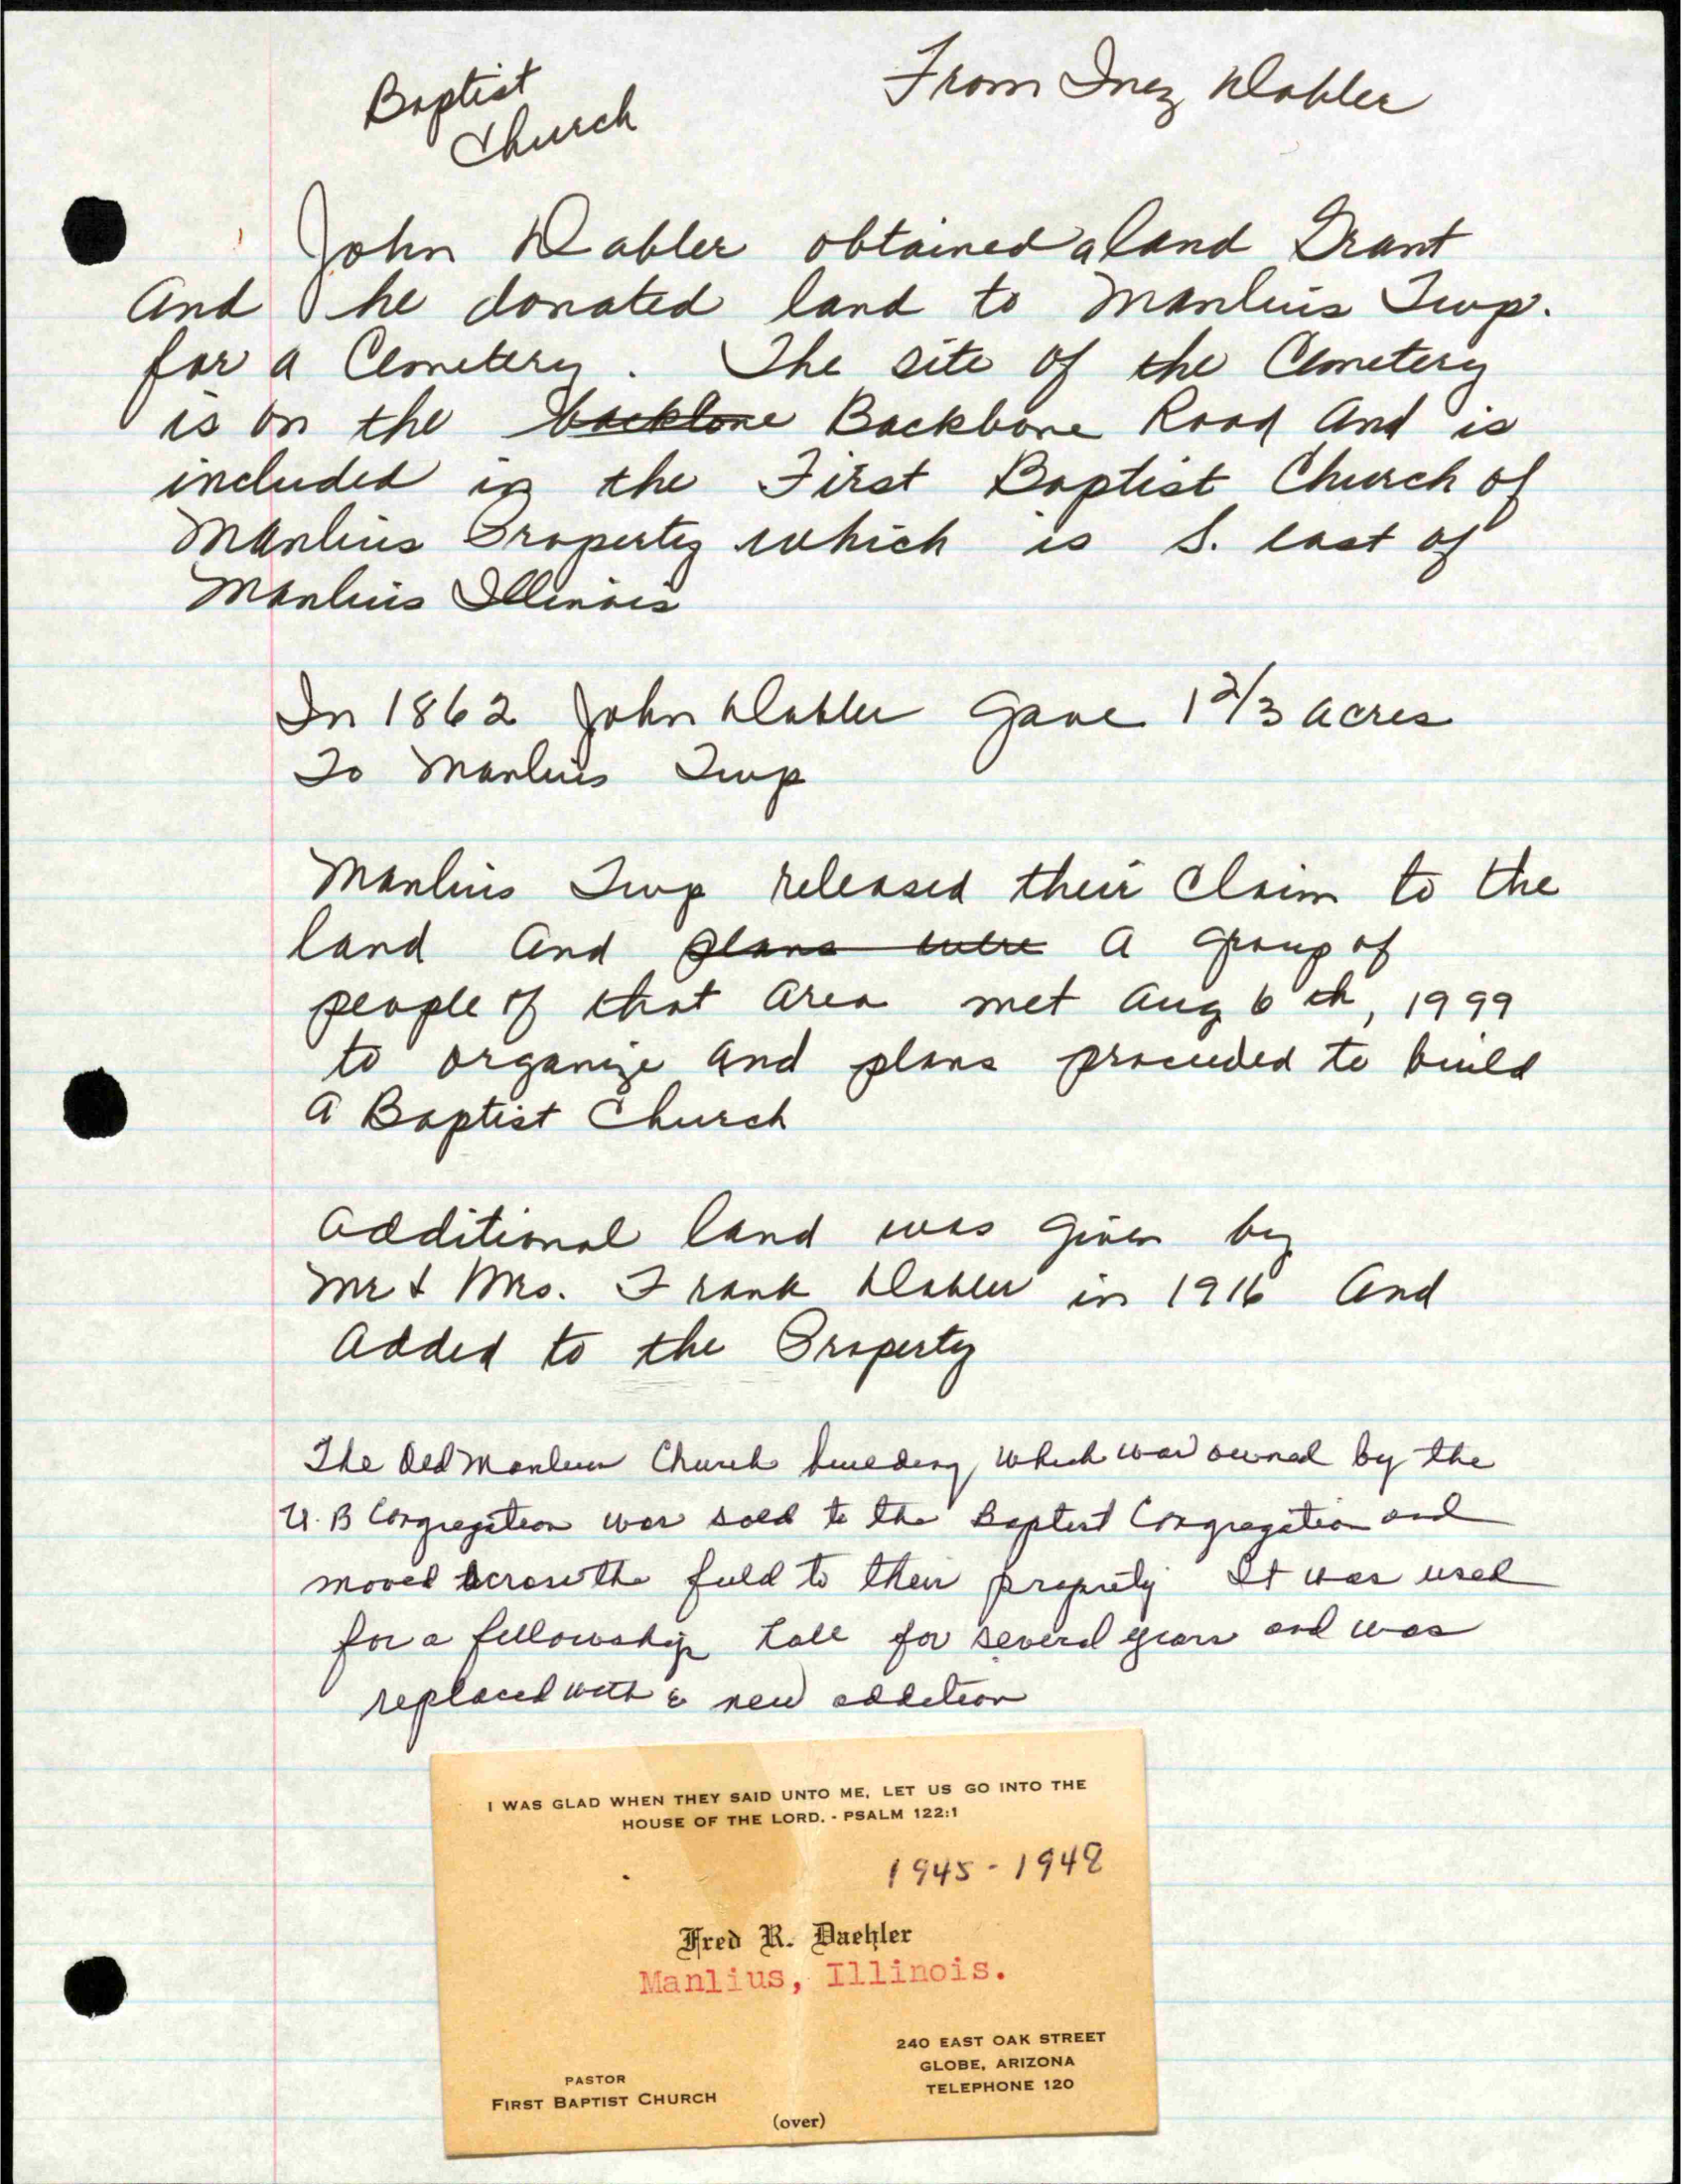 Baptist
Church
From Inez Dabler
John Dabler obtained a land Grant
and he donated land to Manlius Twp.
for a Cemetery. The site of the Cemetery
is on the backbone Backbone Road and is
included in the First Baptist Church of
Manlius Property which is S. east of
Manlius Illinois
In 1862 John Dabler gave 1 2/3 acres
To Manlius Twp
Manlius Twp released their claim to the
land and plans were a group of
people of that area met Aug 6th, 1999
to organize and plans proceeded to build
a Baptist Church
Additional land was given by
Mr & Mrs. Frank Dabler in 1916 and
added to the Property
The Old Manlius Church building, which was owned by the
U.B Congregation was sold to the Baptist Congregation and
moved across the field to their property It was used
for a fellowship hall for several years and was
replaced with a new addition
I WAS GLAD WHEN THEY SAID UNTO ME, LET US GO INTO THE
HOUSE OF THE LORD. - PSALM 122:1
1945 - 1948
Fred R. Daehler
Manlius, Illinois.
240 EAST OAK STREET
GLOBE, ARIZONA
TELEPHONE 120
PASTOR
FIRST BAPTIST CHURCH
(over)